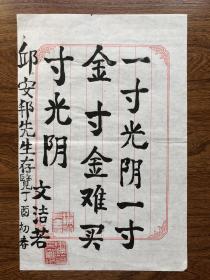 一寸光阴一寸
金寸金难买
寸光阴
文洁若
邱安邦先生存览丁酉初春